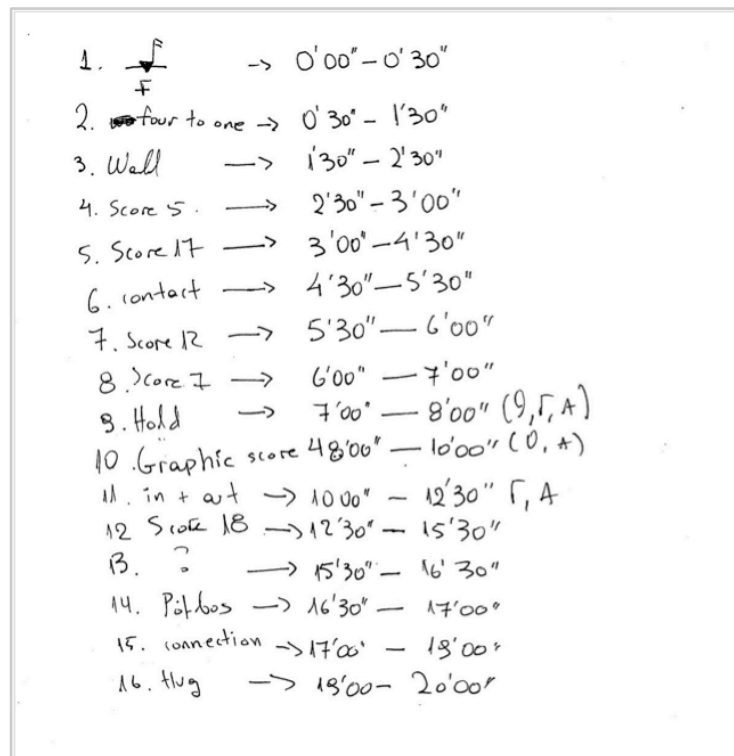 1. F -> 0'00" - 0'30"
2. four to one -> 0'30" - 1'30"
3. Wall -> 1'30" - 2'30"
4. Score 5. -> 2'30" - 3'00"
5. Score 17 -> 3'00" - 4'30"
6. contact -> 4'30" - 5'30"
7. Score 12 -> 5'30" - 6'00"
8. Score 7 -> 6'00" - 7'00"
9. Hold -> 7'00" - 8'00" (Γ, A)
10. Graphic score 4 8'00" - 10'00" (A)
11. in + out -> 10 00" - 12'30" Γ, A
12 Score 18 -> 12'30" - 15'30"
13. ? -> 15'30" - 16'30"
14. -> 16'30" - 17'00"
15. connection -> 17'00" - 19'00"
16. Hug -> 19'00 - 20'00"